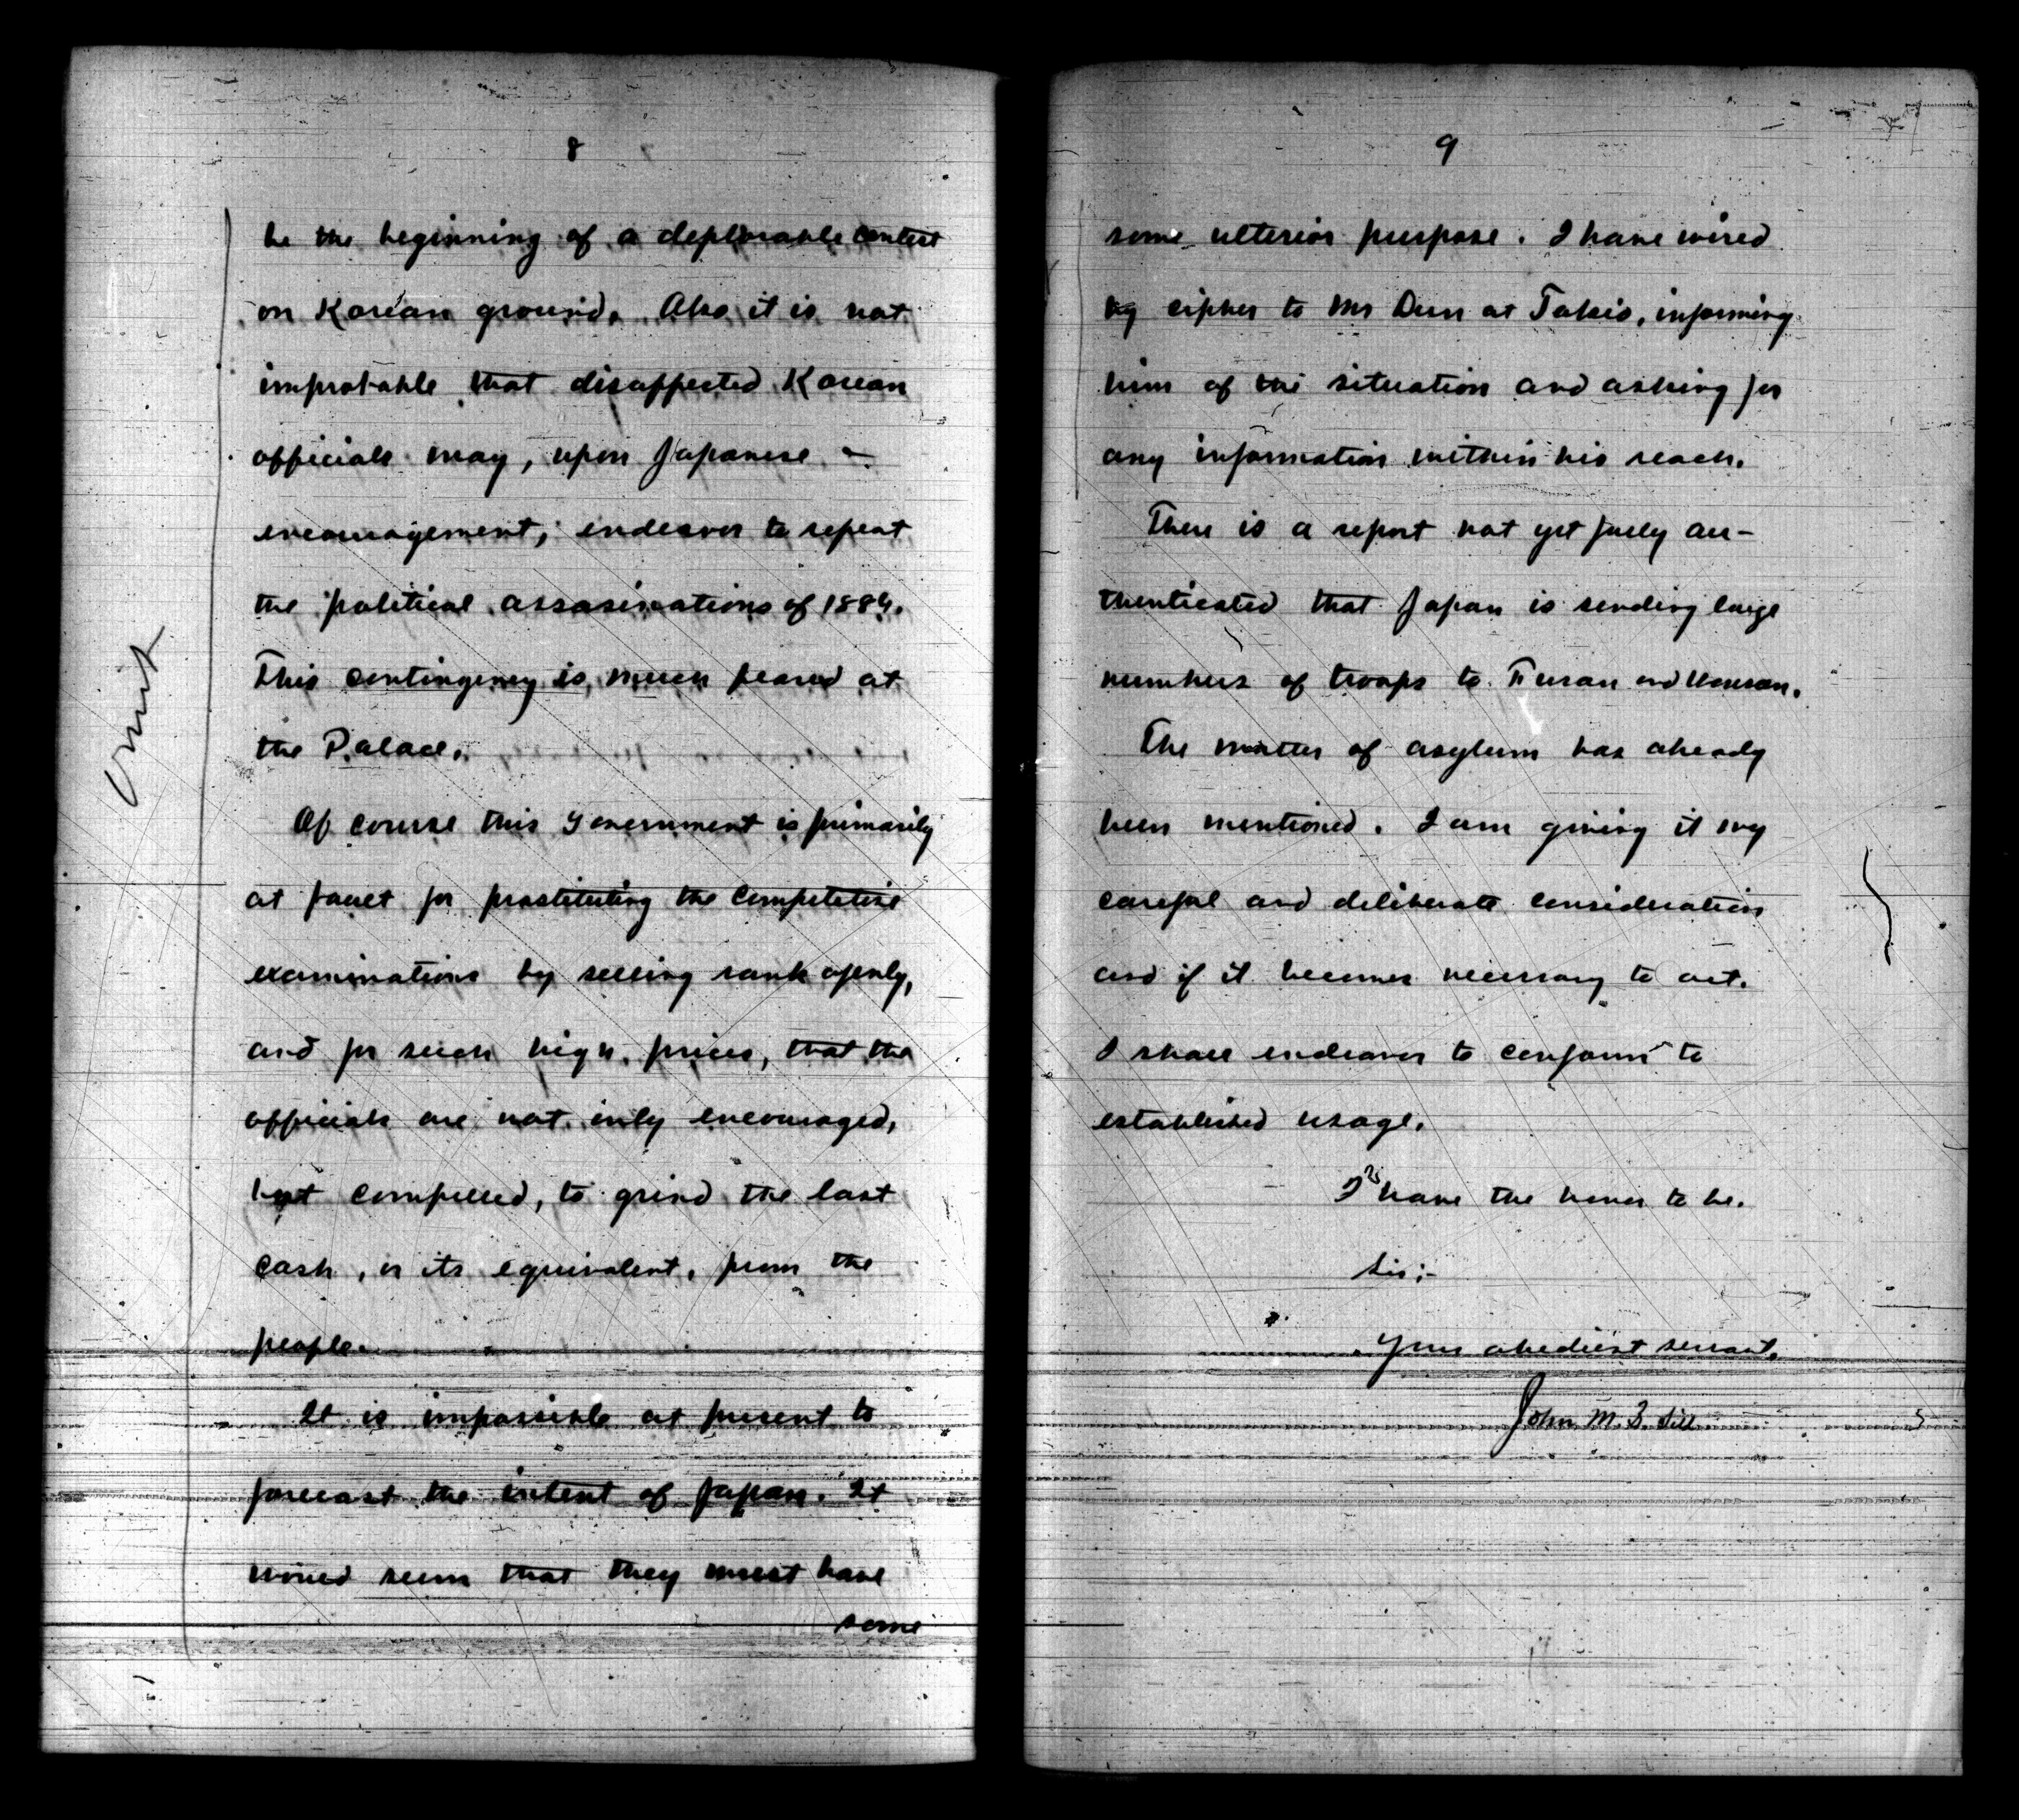 8
be the beginning of a deplorable contest
on Korean ground. Also it is not
improbable that disaffected Korean
officials may, upon Japanese –
encouragement, endeavor to repeat
the political assasinations of 1884.
This contingency is much feared at
the Palace.
Of course this Government is primarily
at fault for prostituting the competetive
examinations by selling rank openly,
and for such high prices, that the
officials are not only encouraged,
but compelled, to grind the last
cash, or its equivalent, from the
people.
It is impossible at present to
forecast the intent of Japan. It
would seem that they must have
some
omit
9
some ulterior purpose. I have wired
by cipher to Mr Dun at Tokio, informing
him of the situation and asking for
any information within his reach.
There is a report not yet fully au-
thenticated that Japan is sending large
numbers of troops to Fusan and Wonsan.
The matter of asylum has already
been mentioned. I am giving it my
careful and deliberate consideration
and if it becomes necessary to act.
I shall endeavor to conform to
established usage.
I have the honor to be.
Sir;-
Your obedient servant,
John M. B. Sill